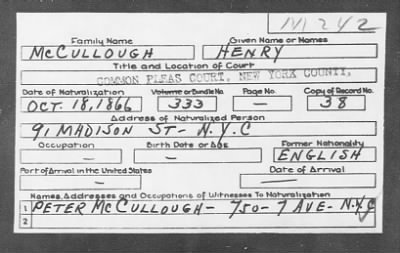 M242
Family Name Given Name or Names
McCULLOUGH HENRY
Title and Location of Court
COMMON PLEAS COURT, NEW YORK COUNTY.
Date of Naturalization Volume or Bundle No. Page No. Copy of Record No.
OCT. 18, 1866 333 — 38
Address of Naturalized Person
91 MADISON ST - N.Y.C
Occupation Birth Date or Age Former Nationality
— — ENGLISH
Port of Arrival in the United States Date of Arrival
— —
Names, Addresses and Occupations of Witnesses To Naturalization
1 PETER McCULLOUGH - 750 - 7 AVE - N.Y.C
2